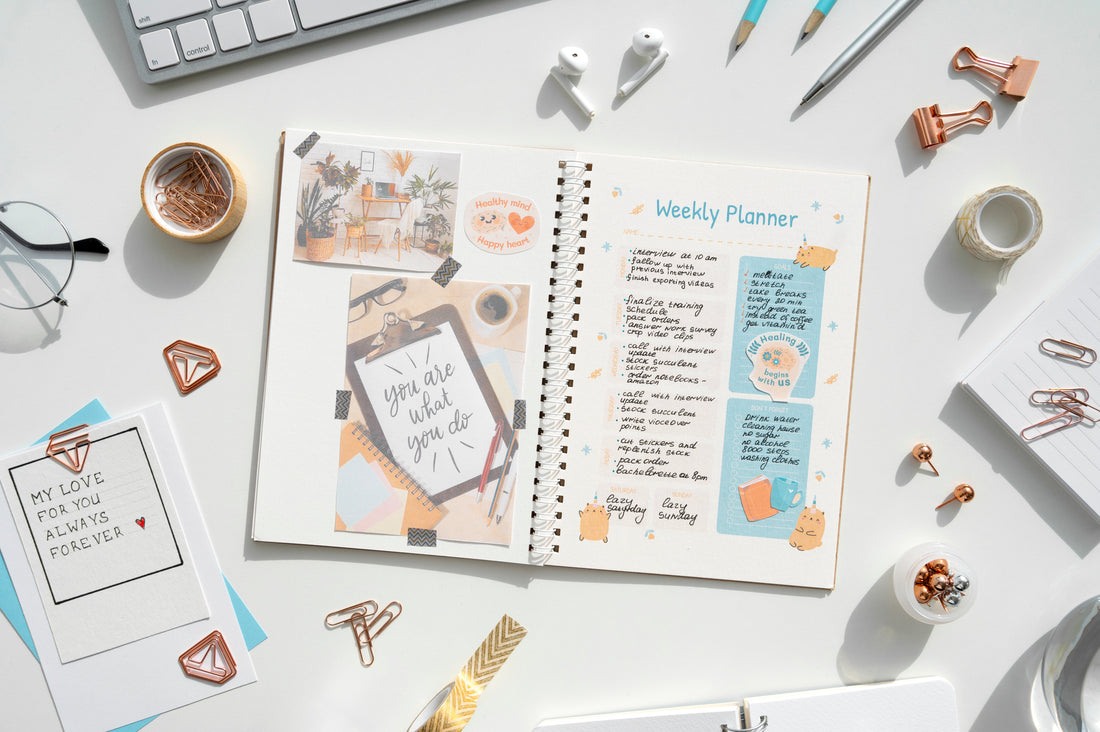 shift
fn
control
Healthy mind
Happy heart
you are
what
you do
MY LOVE
FOR YOU
ALWAYS
FOREVER
Weekly Planner
NAME
•interview at 10 am
•follow up with
previous interview
finish exporting videos
finalize training
schedule
•pack orders
•answer work survey
•crop video clips
•call with interview
update
•stock succulent
stickers
•order notebooks-
amazon
•call with interview
update
•stock succulent
•write voiceover
points
•cut stickers and
replenish stock
•pack order
•bachelorette at 8pm
SATURDAY
lazy
saturday
SUNDAY
lazy
sunday
GOALS
meditate
stretch
take breaks
every 20 min
try green tea
instead of coffee
get vitamin d
Healing
begins
with us
DON'T FORGET
Drink water
cleaning house
no sugar
no alcohol
8000 steps
washing clothes